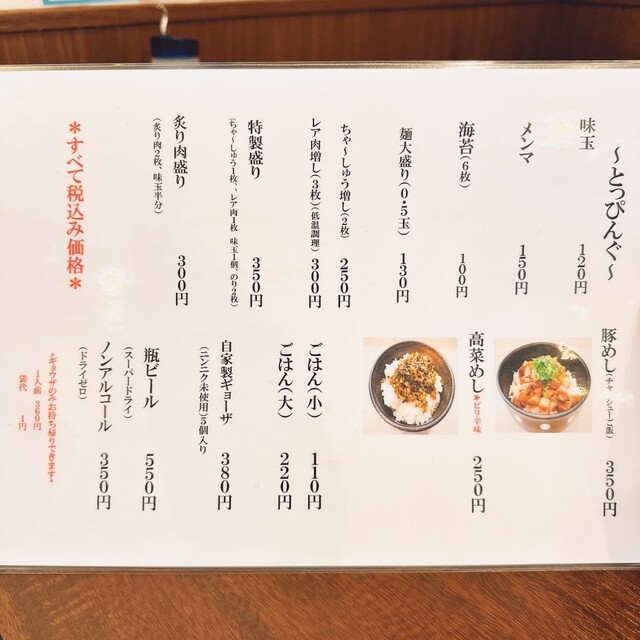 ～とっぴんぐ～
味玉 120円
メンマ 150円
海苔(6枚) 100円
麺大盛り(0・5玉) 130円
ちゃ～しゅう増し(2枚) 250円
レア肉増し(3枚)(低温調理) 300円
特製盛り 350円
(ちゃ～しゅう1枚、、レア肉1枚 味玉1個、のり2枚)
炙り肉盛り 300円
(炙り肉2枚、味玉半分)
＊すべて税込み価格＊
豚めし(チャーシューご飯) 350円
高菜めし*ピリ辛味 250円
ごはん(小) 110円
ごはん(大) 220円
自家製ギョーザ 380円
(ニンニク未使用)5個入り
瓶ビール 550円
(スーパードライ)
ノンアルコール 350円
(ドライゼロ)
*ギョウザのみお持ち帰りできます*
1人前 360円
袋代 1円